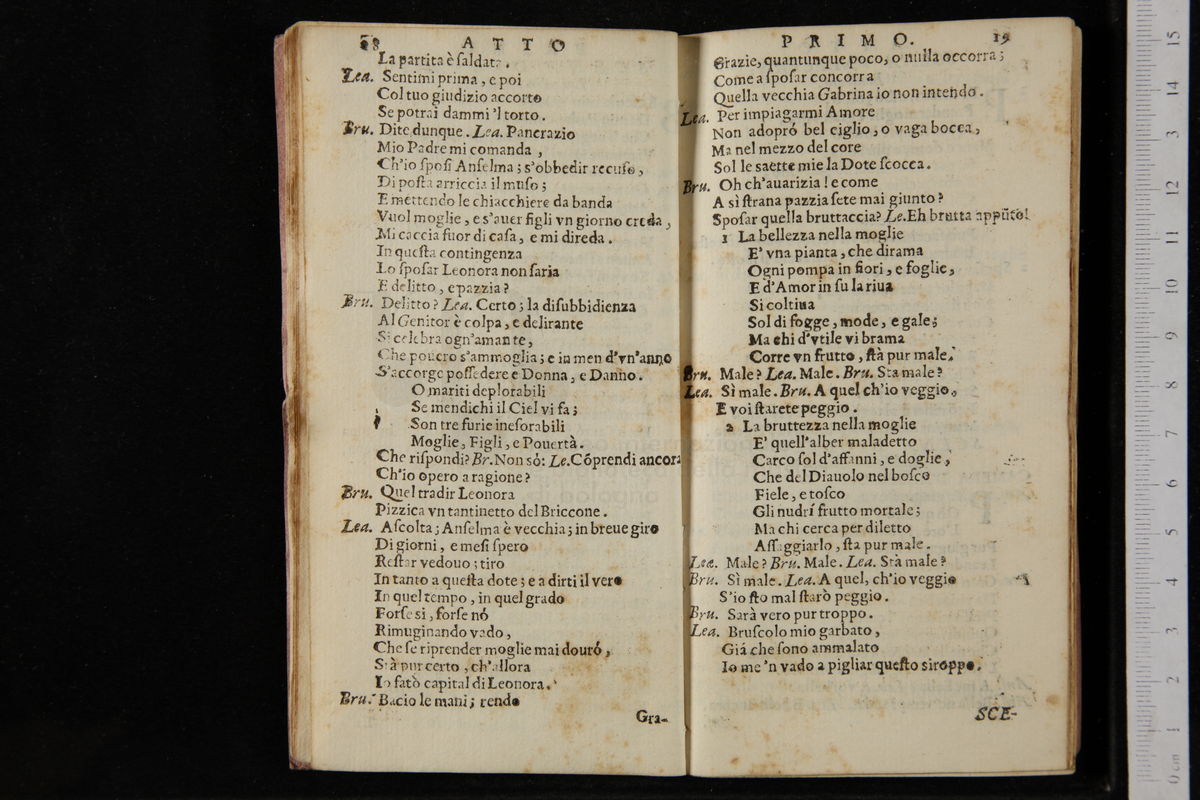 28 ATTO
La partita è ſaldata.
Lea. Sentimi prima, e poi
Col tuo giudizio accorto
Se potrai dammi 'l torto.
Bru. Dite dunque. Lea. Pancrazio
Mio Padre mi comanda,
Ch'io ſpoſi Anſelma; s'obbedir recuſo,
Di poſta arriccia il muſo;
E mettendo le chiacchiere da banda
Vuol moglie, e s'auer figli vn giorno creda,
Mi caccia fuor di caſa, e mi direda.
In queſta contingenza
Lo ſpoſar Leonora non ſaria
E delitto, e pazzia?
Bru. Delitto? Lea. Certo; la diſubbidienza
Al Genitor è colpa, e delirante
Si celebra ogn'amante,
Che pouero s'ammoglia; e in men d'vn'anno
S'accorge poſſedere e Donna, e Danno.
O mariti deplorabili
Se mendichi il Ciel vi fa;
Son tre furie ineſorabili
Moglie, Figli, e Pouertà.
Che riſpondi? Br. Non só: Le. Cõprendi ancora
Ch'io opero a ragione?
Bru. Quel tradir Leonora
Pizzica vn tantinetto del Briccone.
Lea. Aſcolta; Anſelma è vecchia; in breue giro
Di giorni, e meſi ſpero
Reſtar vedouo; tiro
In tanto a queſta dote; e a dirti il vero
In quel tempo, in quel grado
Forſe si, forſe nó
Rimuginando vado,
Che ſe riprender moglie mai douró,
Stà pur certo, ch'allora
Io fatò capital di Leonora.
Bru. Bacio le mani; rendo
Gra-
PRIMO. 19
Grazie, quantunque poco, o nulla occorra;
Come a ſpoſar concorra
Quella vecchia Gabrina io non intendo.
Lea. Per impiagarmi Amore
Non adopró bel ciglio, o vaga bocca,
Ma nel mezzo del core
Sol le saette mie la Dote ſcocca.
Bru. Oh ch'auarizia! e come
A sì ſtrana pazzia ſete mai giunto?
Spoſar quella bruttaccia? Le. Eh brutta appũto!
1 La bellezza nella moglie
E' vna pianta, che dirama
Ogni pompa in fiori, e foglie,
E d'Amor in ſu la riua
Si coltiua
Sol di fogge, mode, e gale;
Ma chi d'vtile vi brama
Corre vn frutto, ſtà pur male.
Bru. Male? Lea. Male. Bru. Sta male?
Lea. Sì male. Bru. A quel ch'io veggio,
E voi ſtarete peggio.
2 La bruttezza nella moglie
E' quell'alber maladetto
Carco ſol d'affanni, e doglie,
Che del Diauolo nel boſco
Fiele, e toſco
Gli nudrí frutto mortale;
Ma chi cerca per diletto
Aſſaggiarlo, ſta pur male.
Lea. Male? Bru. Male. Lea. Stà male?
Bru. Sì male. Lea. A quel, ch'io veggio
S'io ſto mal ſtarò peggio.
Bru. Sarà vero pur troppo.
Lea. Bruſcolo mio garbato,
Giá che ſono ammalato
Io me 'n vado a pigliar queſto siroppo.
SCE-